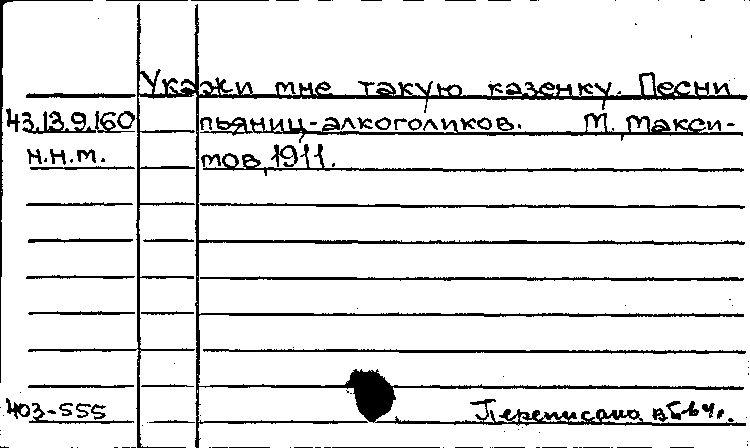 Укажи мне такую казенку. Песни
43.13.9.160 пьяниц-алкоголиков. М, Макси-
н.н.т. мов, 1911.
403-555 Переписана